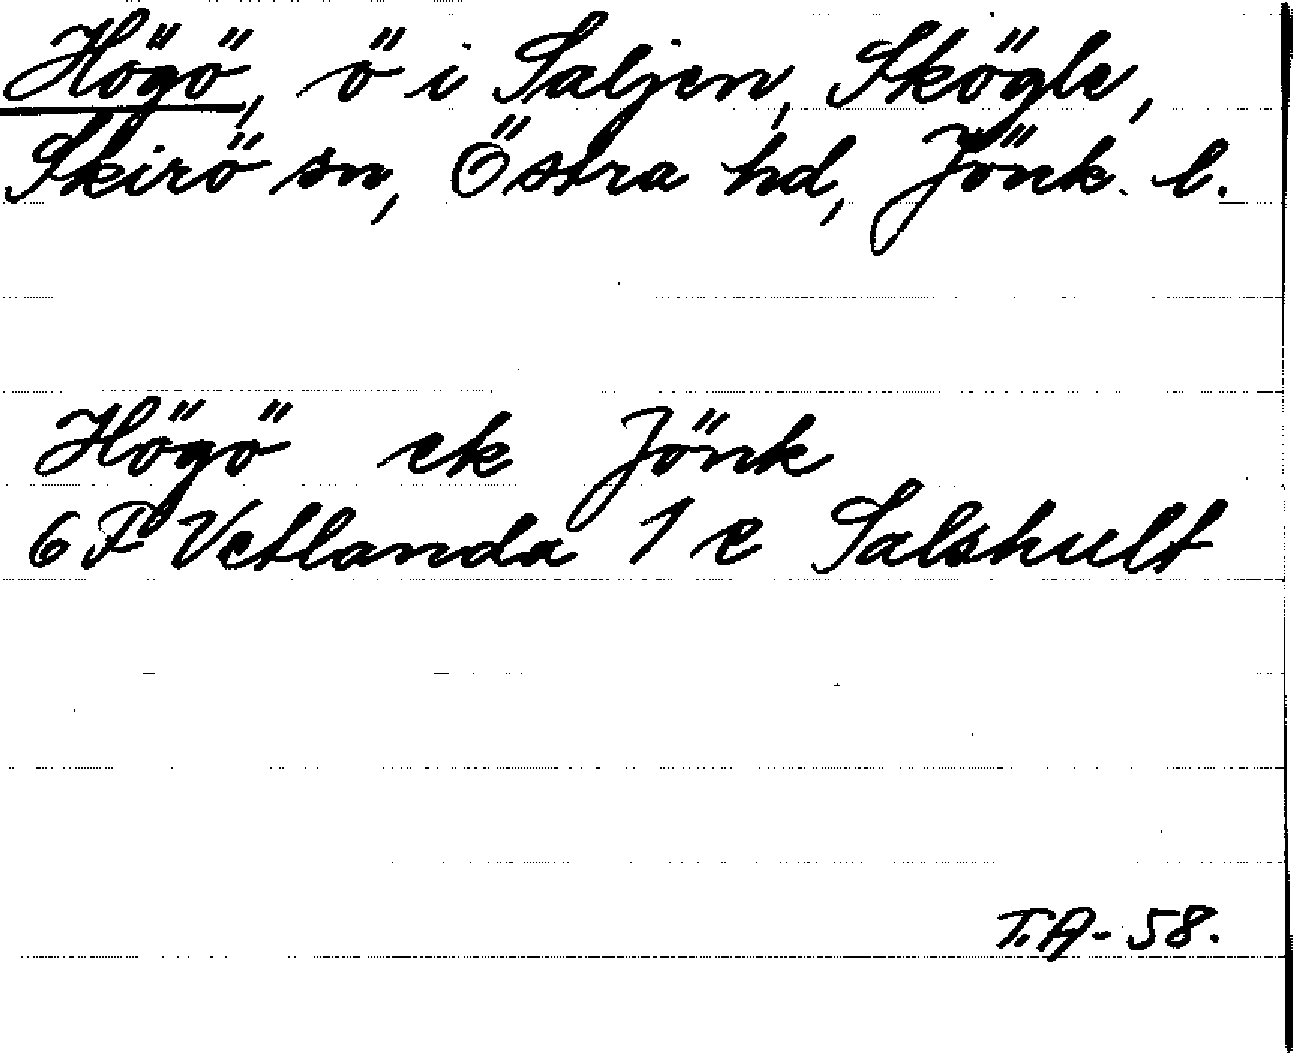 Högö, ö i Saljen, Skögle,
Skirö sn, Östra hd, Jönk. l.
Högö ek Jönk
6 F Vetlanda 1 e Salshult
T.A-58.